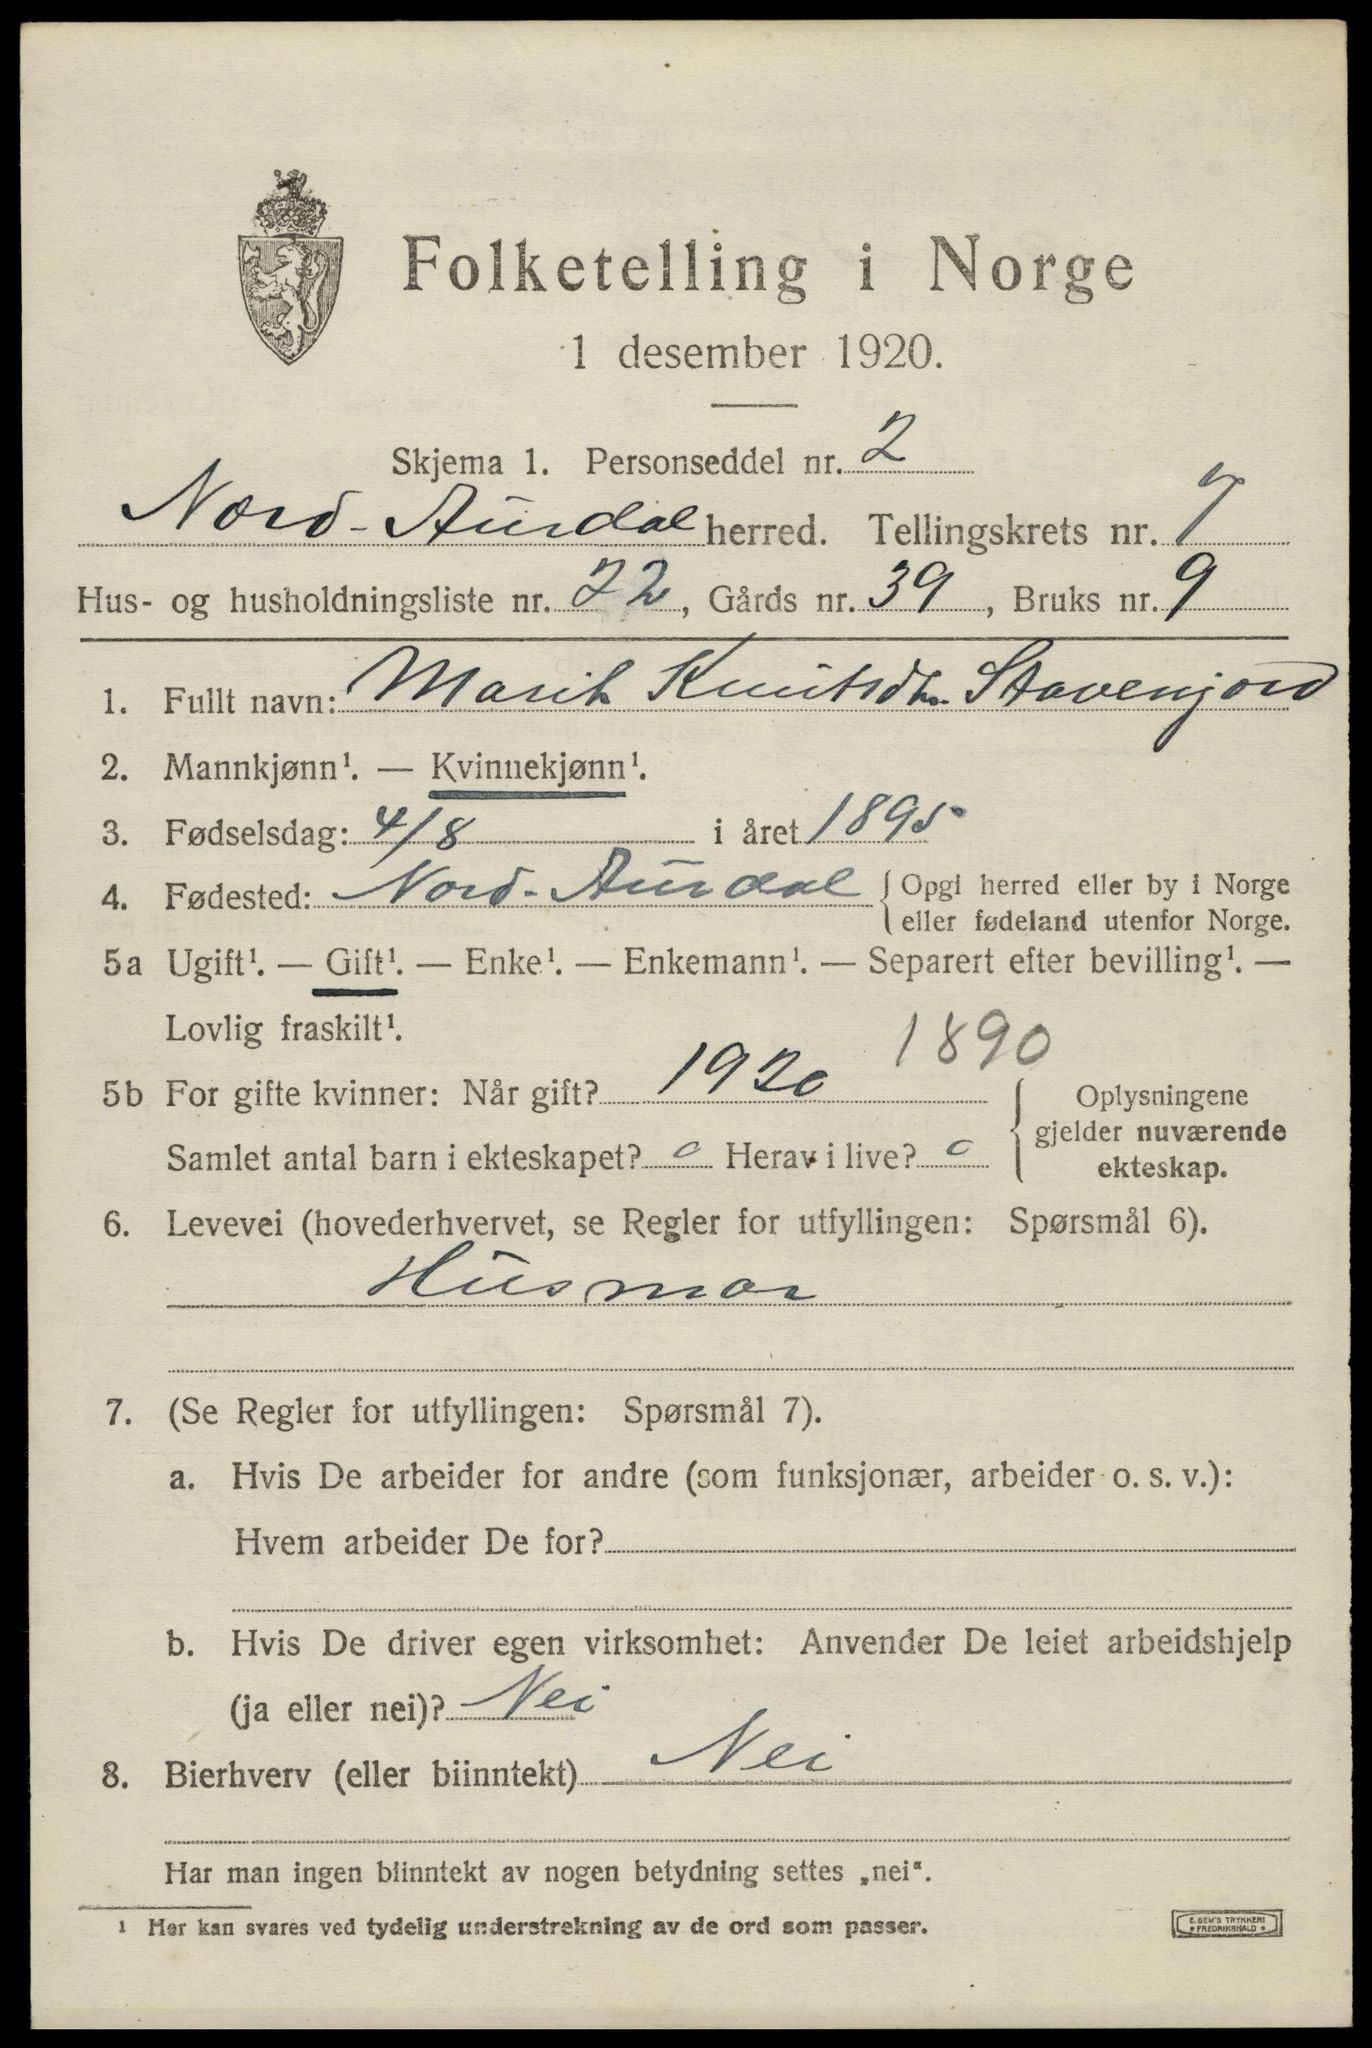 Folketelling i Norge
1 desember 1920.
Skjema 1. Personseddel nr. 2
Nord-Aurdal herred. Tellingskrets nr. 7
Hus- og husholdningsliste nr. 22, Gårds nr. 39, Bruks nr. 9
1. Fullt navn: Marit Knutsdtr. Stavenjord
2. Mannkjønn¹. — Kvinnekjønn¹.
3. Fødselsdag: 4/8 i året 1895
4. Fødested: Nord-Aurdal { Opgi herred eller by i Norge
eller fødeland utenfor Norge.
5a Ugift¹. — Gift¹. — Enke¹. — Enkemann¹. — Separert efter bevilling¹. —
Lovlig fraskilt¹.
1890
5b For gifte kvinner: Når gift? 1920
Samlet antal barn i ekteskapet? 0 Herav i live? 0
Oplysningene
gjelder nuværende
ekteskap.
6. Levevei (hovederhvervet, se Regler for utfyllingen: Spørsmål 6).
Husmor
7. (Se Regler for utfyllingen: Spørsmål 7).
a. Hvis De arbeider for andre (som funksjonær, arbeider o. s. v.):
Hvem arbeider De for?
b. Hvis De driver egen virksomhet: Anvender De leiet arbeidshjelp
(ja eller nei)? Nei
8. Bierhverv (eller biinntekt) Nei
Har man ingen biinntekt av nogen betydning settes „nei“.
¹ Her kan svares ved tydelig understrekning av de ord som passer.
E. SEM'S TRYKKERI
• FREDRIKSHALD •